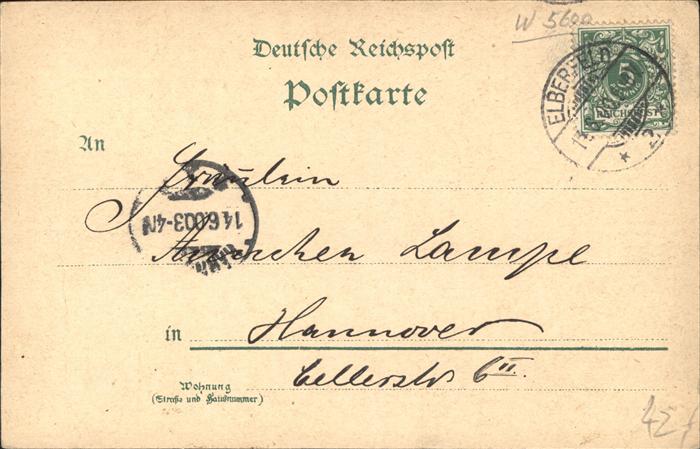 W 5600
Deutsche Reichspost
Postkarte
ELBERFELD
5
REICHSPOST
An
Fräulein
14.6.00.3-4N
Ännchen Lampe
in Hannover
Cellerstr 6 II.
Wohnung
(Straße und Hausnummer)
42